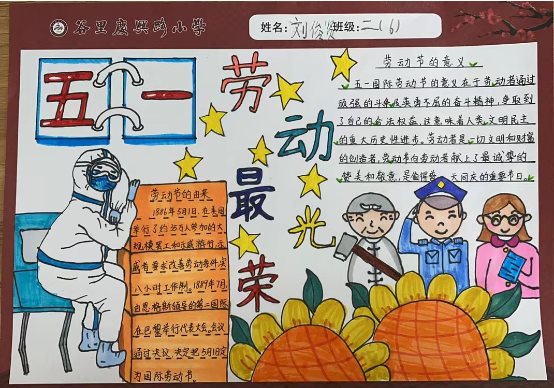 谷里庆兴路小学
姓名：刘俊贤 班级：二（6）
五一
劳动最光荣
劳动节的意义
五一国际劳动节的意义在于劳动者通过
顽强的斗争及英勇不屈的奋斗精神，争取到
了自己的合法权益，这意味着人类文明民主
的重大历史性进步。劳动者是一切文明和财富
的创造者，劳动率向劳动者献上了最诚挚的
赞美和敬意，是值得
天同庆的重要节日。
劳动节的由来
1886年5月1日，在美国
举行了约35万人参加的大
规模罢工和示威游行，示
威者要求改善劳动条件，实
八小时工作制。1889年7月，
由恩格斯领导的第二国际
在巴黎举行代表大会。会议
通过决议，决定把5月1日定
为国际劳动节。